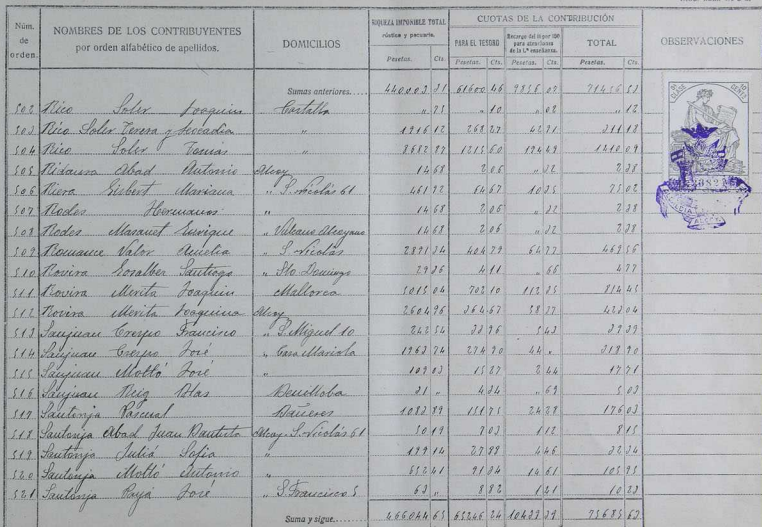 Núm. de orden. NOMBRES DE LOS CONTRIBUYENTES por orden alfabético de apellidos. DOMICILIOS RIQUEZA IMPONIBLE TOTAL rústica y pecuaria. Pesetas. Cts. CUOTAS DE LA CONTRIBUCIÓN PARA EL TESORO Pesetas. Cts. Recargo del 16 por 100 para atenciones de la 1.ª enseñanza. Pesetas. Cts. TOTAL Pesetas. Cts. OBSERVACIONES
Sumas anteriores..... 61600 46
502 Rico Soler Joaquin Castalla " 10 " 02 " 12
503 Rico Soler Teresa y Leocadia " 1916 12 268 27 311 18
504 Rico Soler Tomás " 1215 60 194 49 1410 09
505 Ridaura Abad Antonio Alcoy 14 68 2 06 " 32 2 38
506 Riera Gisbert Mariana " S. Nicolás 61 64 67 10 35 75 02
507 Rodes Hermanos " 14 68 2 06 " 32 2 38
508 Rodes Masanet Enrique " Vulcano Alcoyano 14 68 2 06 " 32 2 38
509 Romance Valor Amelia " S. Nicolás 404 79 64 77 469 56
510 Rovira Gosalbez Santiago " Sto. Domingo 4 11 " 66 4 77
511 Rovira Merita Joaquin Mallorca 5015 04 702 10 112 35 814 45
512 Rovira Merita Joaquina Alcoy 2604 96 364 67 58 37 423 04
513 Sanjuan Crespo Francisco " S. Miguel 10 33 96 5 43 39 39
514 Sanjuan Crespo José " Casa Mariola 1963 74 274 90 44 " 318 90
515 Sanjuan Moltó José " 109 03 15 27 2 44 17 71
516 Sanjuan Reig Blas Benilloba 31 " 4 34 " 69 5 03
517 Santonja Pascual Bañeres 1083 89 151 75 24 28 176 03
518 Santonja Abad Juan Bautista Alcoy S. Nicolás 61 50 19 7 03 1 12 8 15
519 Santonja Juliá Sofia " 199 14 27 88 4 46 32 34
520 Santonja Moltó Antonio " 652 41 91 34 14 61 105 95
521 Santonja Payá José " S. Francisco 5 63 " 8 82 1 41 10 23
Suma y sigue..... 466044 65 65246 24 10439 39 75685 63